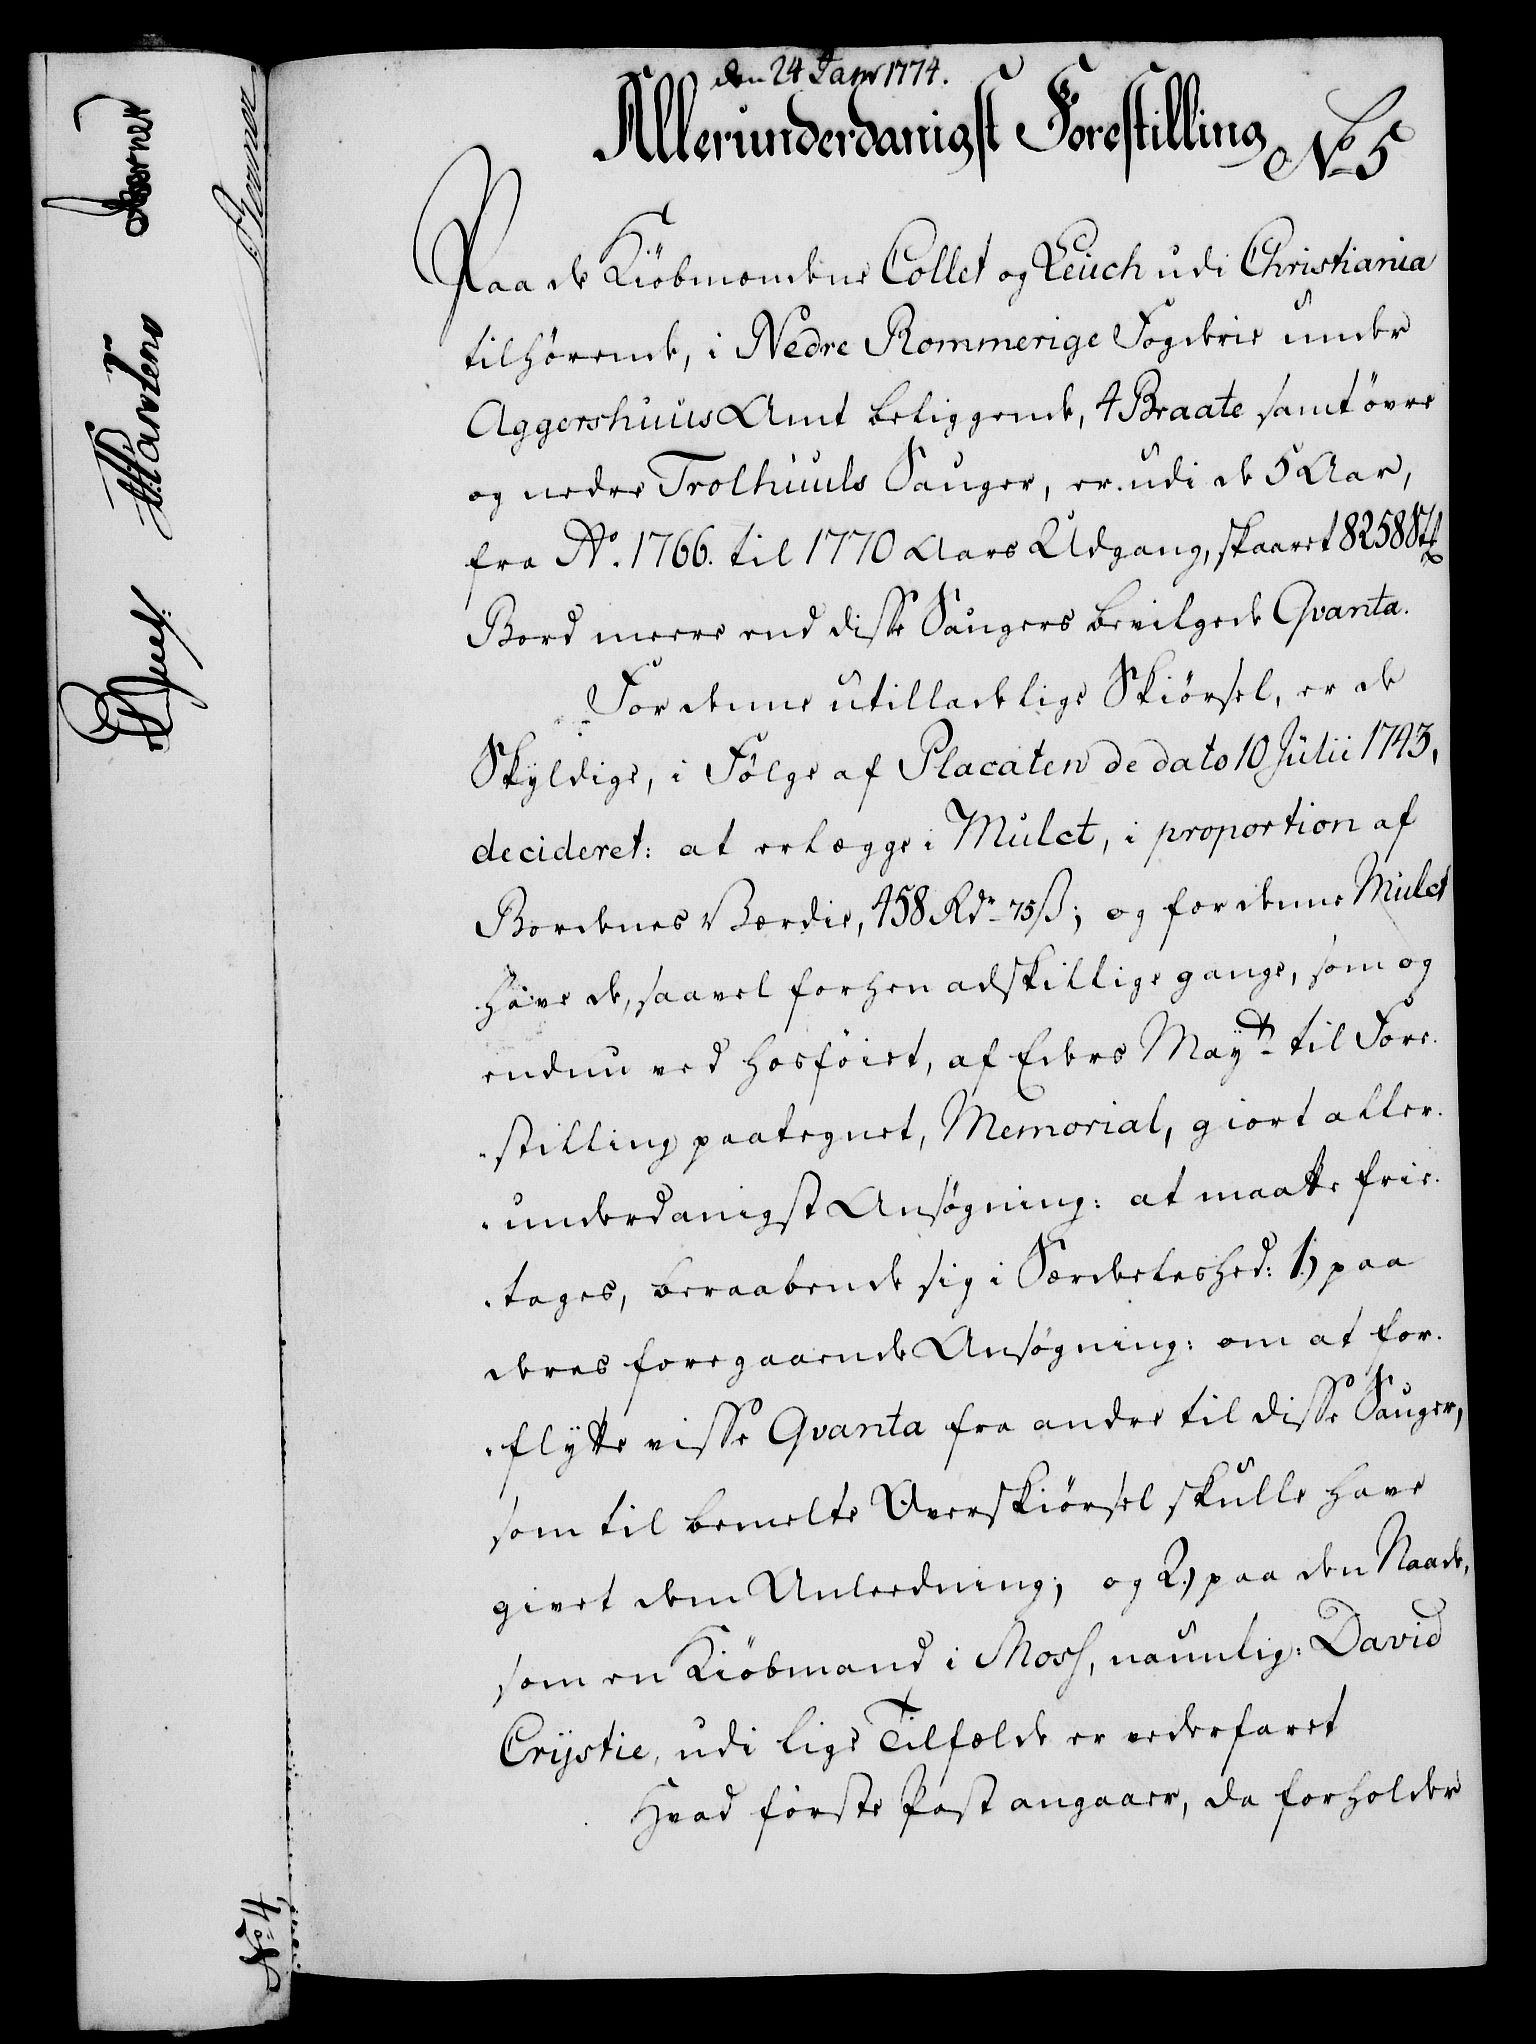 den 24 Janr 1774.
Allerunderdanigst Forestilling
No 5
Paa de Kiöbmændene Collet og Leuch udi Christiania
tilhørende, i Nedre Rommerige Fogderie under
Aggershuus Amt beliggende, 4 Braate samt övre
og nedre Trolhuuls Sauger, er udi de 5 Aar,
fra Ao. 1766. til 1770 Aars Udgang, skaaret 18258 Stk
Bord meere end disse Saugers bevilgede Qvanta.
For denne utilladelige Skiörsel, er de
Skyldige, i Fölge af Placaten de dato 10 Julii 1743,
decideret: at erlægge i Mulct, i proportion af
Bordenes Værdie, 458 Rdr 75 ß; og for denne Mulct
have de, saavel forhen adskillige gange, som og
endnu ved hosföiet, af Eders Mayt til Fore-
stilling paategnet, Memorial, giort aller-
underdanigst Ansøgning: at maatte frie-
tages, beraabende sig i Særdeleshed: 1.) paa
deres foregaaende Ansøgning: om at for-
flytte visse Qvanta fra andre til disse Sauger,
som til bemelte Overskiörsel skulle have
givet dem Anledning; og 2.) paa den Naade,
som en Kiöbmand i Moss, naunlig: David
Crystie, udi lige Tilfælde er vederfaret
Hvad förste Post angaaer, da forholder
Juel
No 4